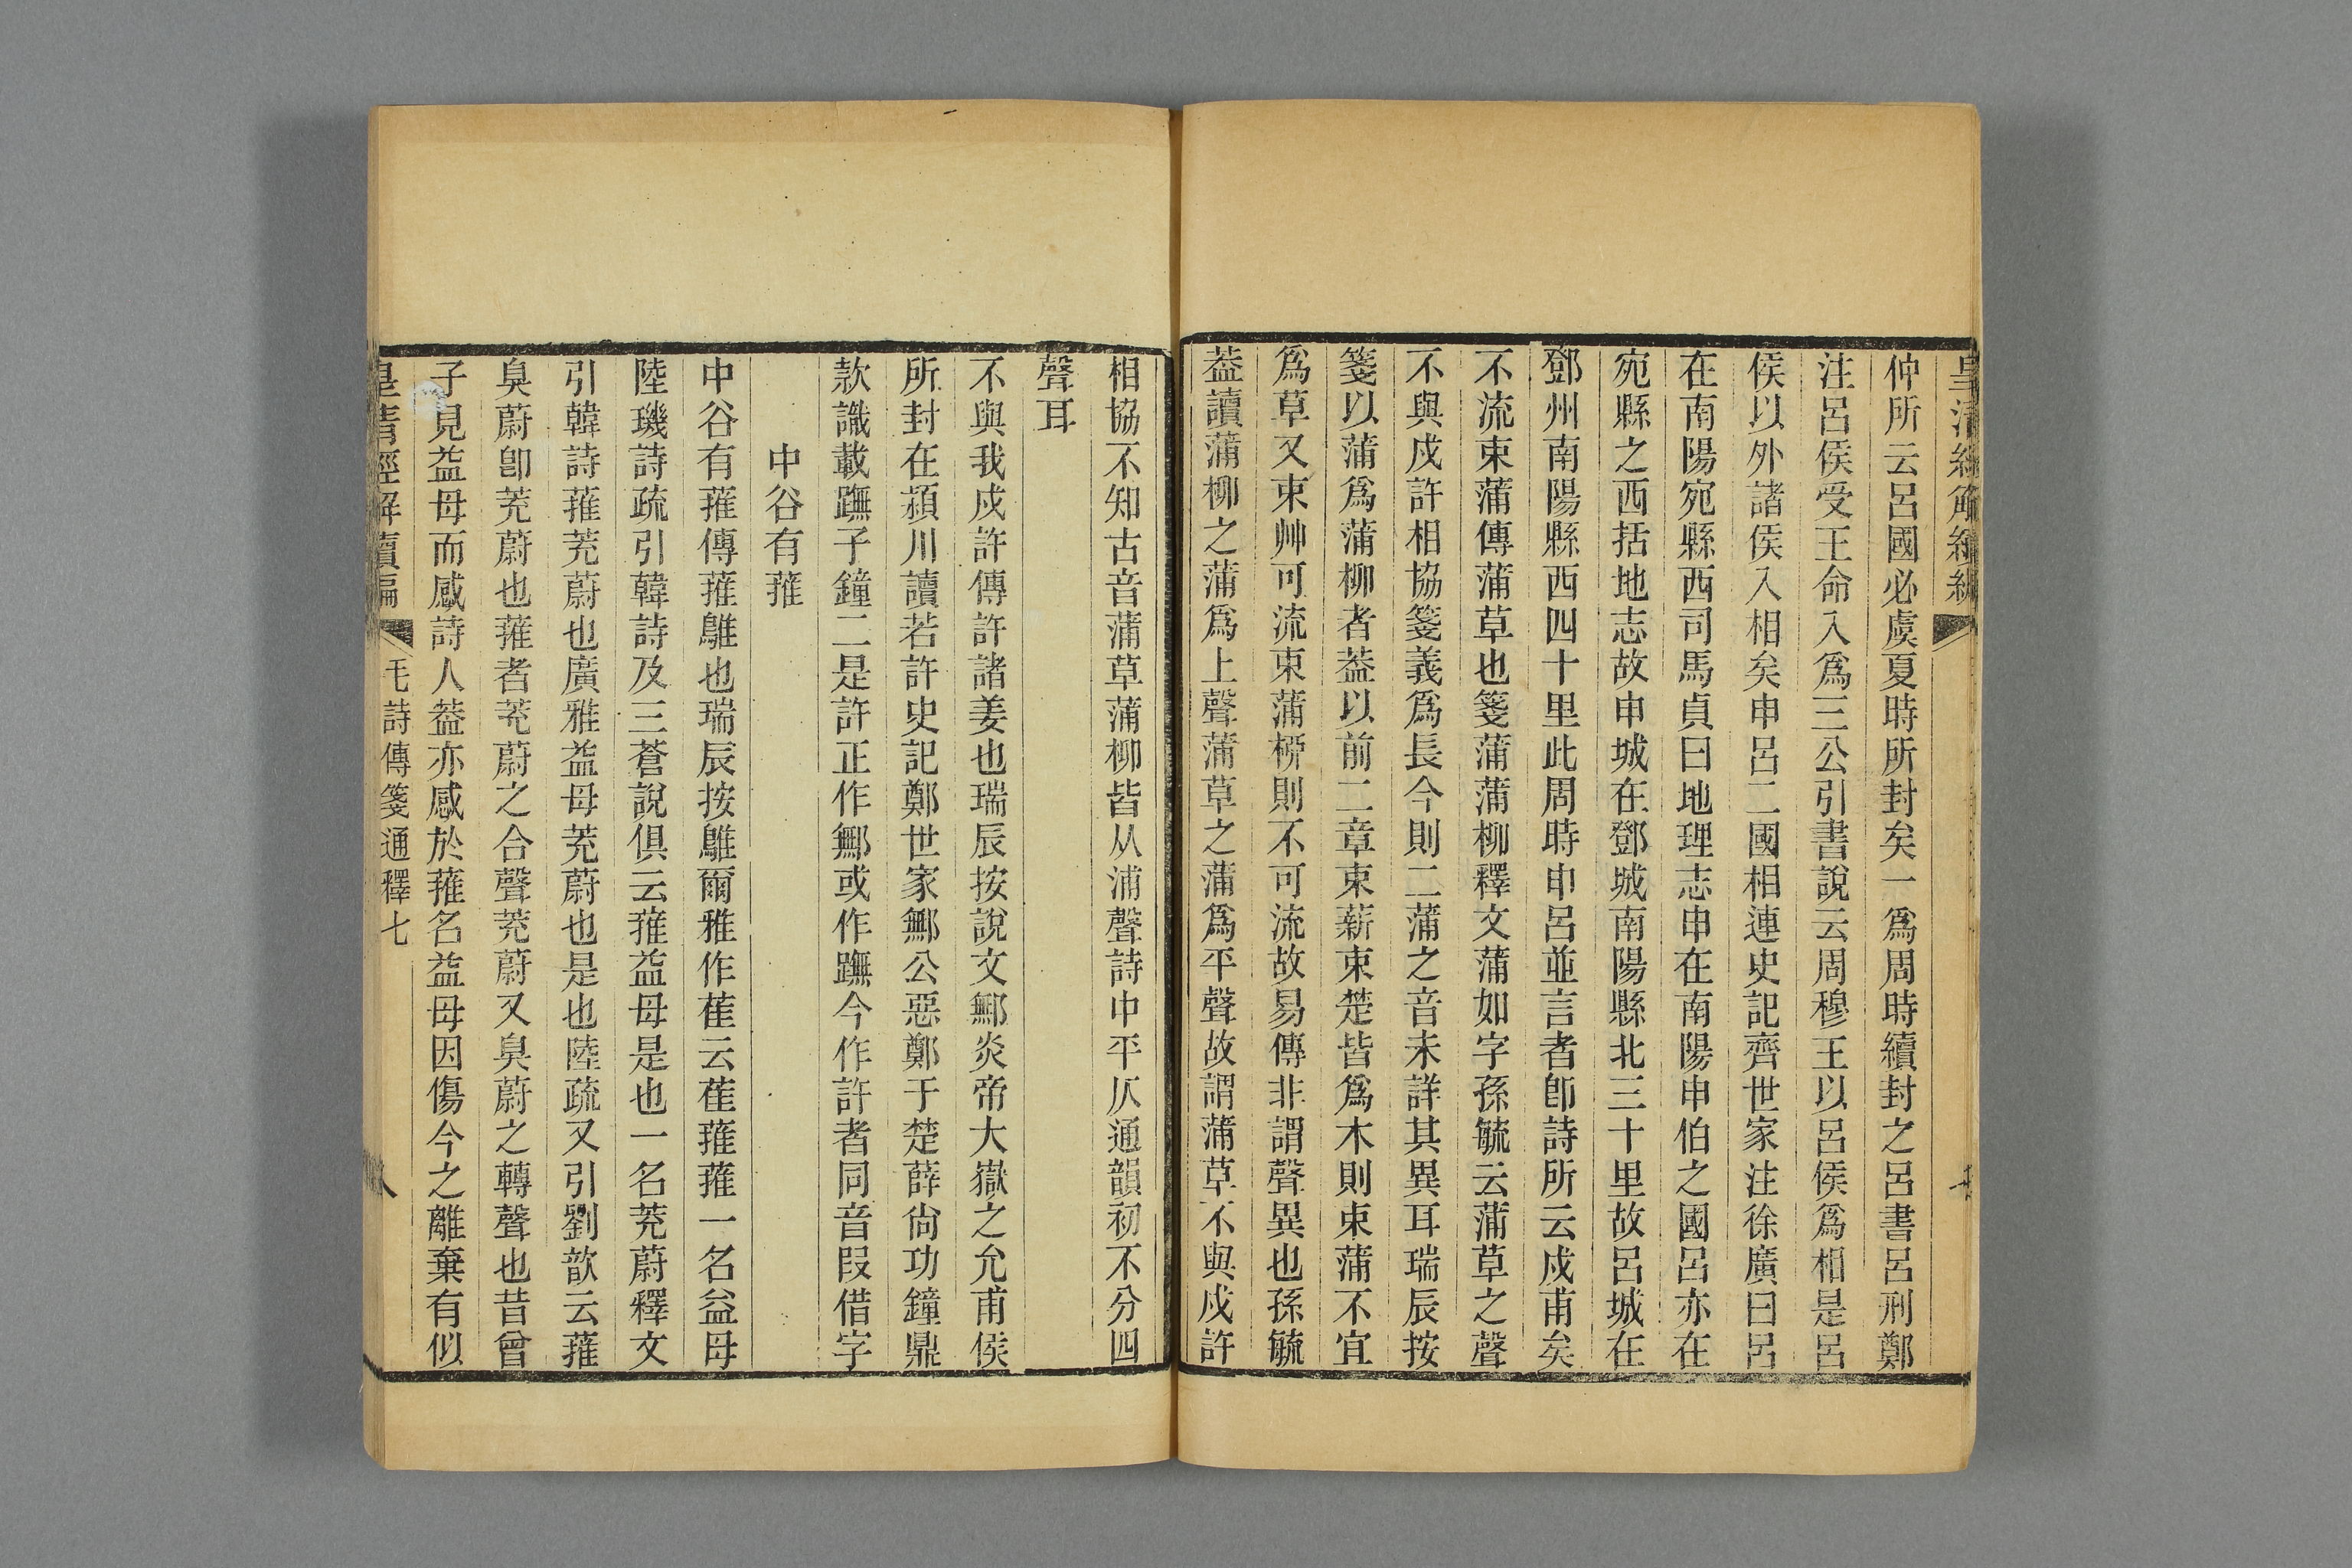 皇清經解續編
仲所云呂國必虞夏時所封矣一爲周時續封之呂書呂刑鄭
注呂侯受王命入爲三公引書說云周穆王以呂侯爲相是呂
侯以外諸侯入相矣申呂二國相連史記齊世家注徐廣曰呂
在南陽宛縣西司馬貞曰地理志申在南陽申伯之國呂亦在
宛縣之西括地志故申城在鄧城南陽縣北三十里故呂城在
鄧州南陽縣西四十里此周時申呂並言者卽詩所云戍甫矣
不流束蒲傳蒲草也箋蒲蒲柳釋文蒲如字孫毓云蒲草之聲
不與戍許相協箋義爲長今則二蒲之音未詳其異耳瑞辰按
箋以蒲爲蒲柳者葢以前二章束薪束楚皆爲木則束蒲不宜
爲草又束艸可流束蒲桺則不可流故易傳非謂聲異也孫毓
葢讀蒲柳之蒲爲上聲蒲草之蒲爲平聲故謂蒲草不與戍許
相協不知古音蒲草蒲柳皆从浦聲詩中平仄通韻初不分四
聲耳
不與我戍許傳許諸姜也瑞辰按說文鄦炎帝大嶽之允甫侯
所封在潁川讀若許史記鄭世家鄦公惡鄭于楚薛尙功鐘鼎
款識載䌬子鐘二是許正作鄦或作䌬今作許者同音叚借字
中谷有蓷
中谷有蓷傳蓷鵻也瑞辰按鵻爾雅作萑云萑蓷蓷一名益母
陸璣詩疏引韓詩及三蒼說俱云蓷益母是也一名茺蔚釋文
引韓詩蓷茺蔚也廣雅益母茺蔚也是也陸疏又引劉歆云蓷
臭蔚卽茺蔚也蓷者茺蔚之合聲茺蔚又臭蔚之轉聲也昔曾
子見益母而感詩人葢亦感於蓷名益母因傷今之離棄有似
皇清經解續編
毛詩傳箋通釋七
八